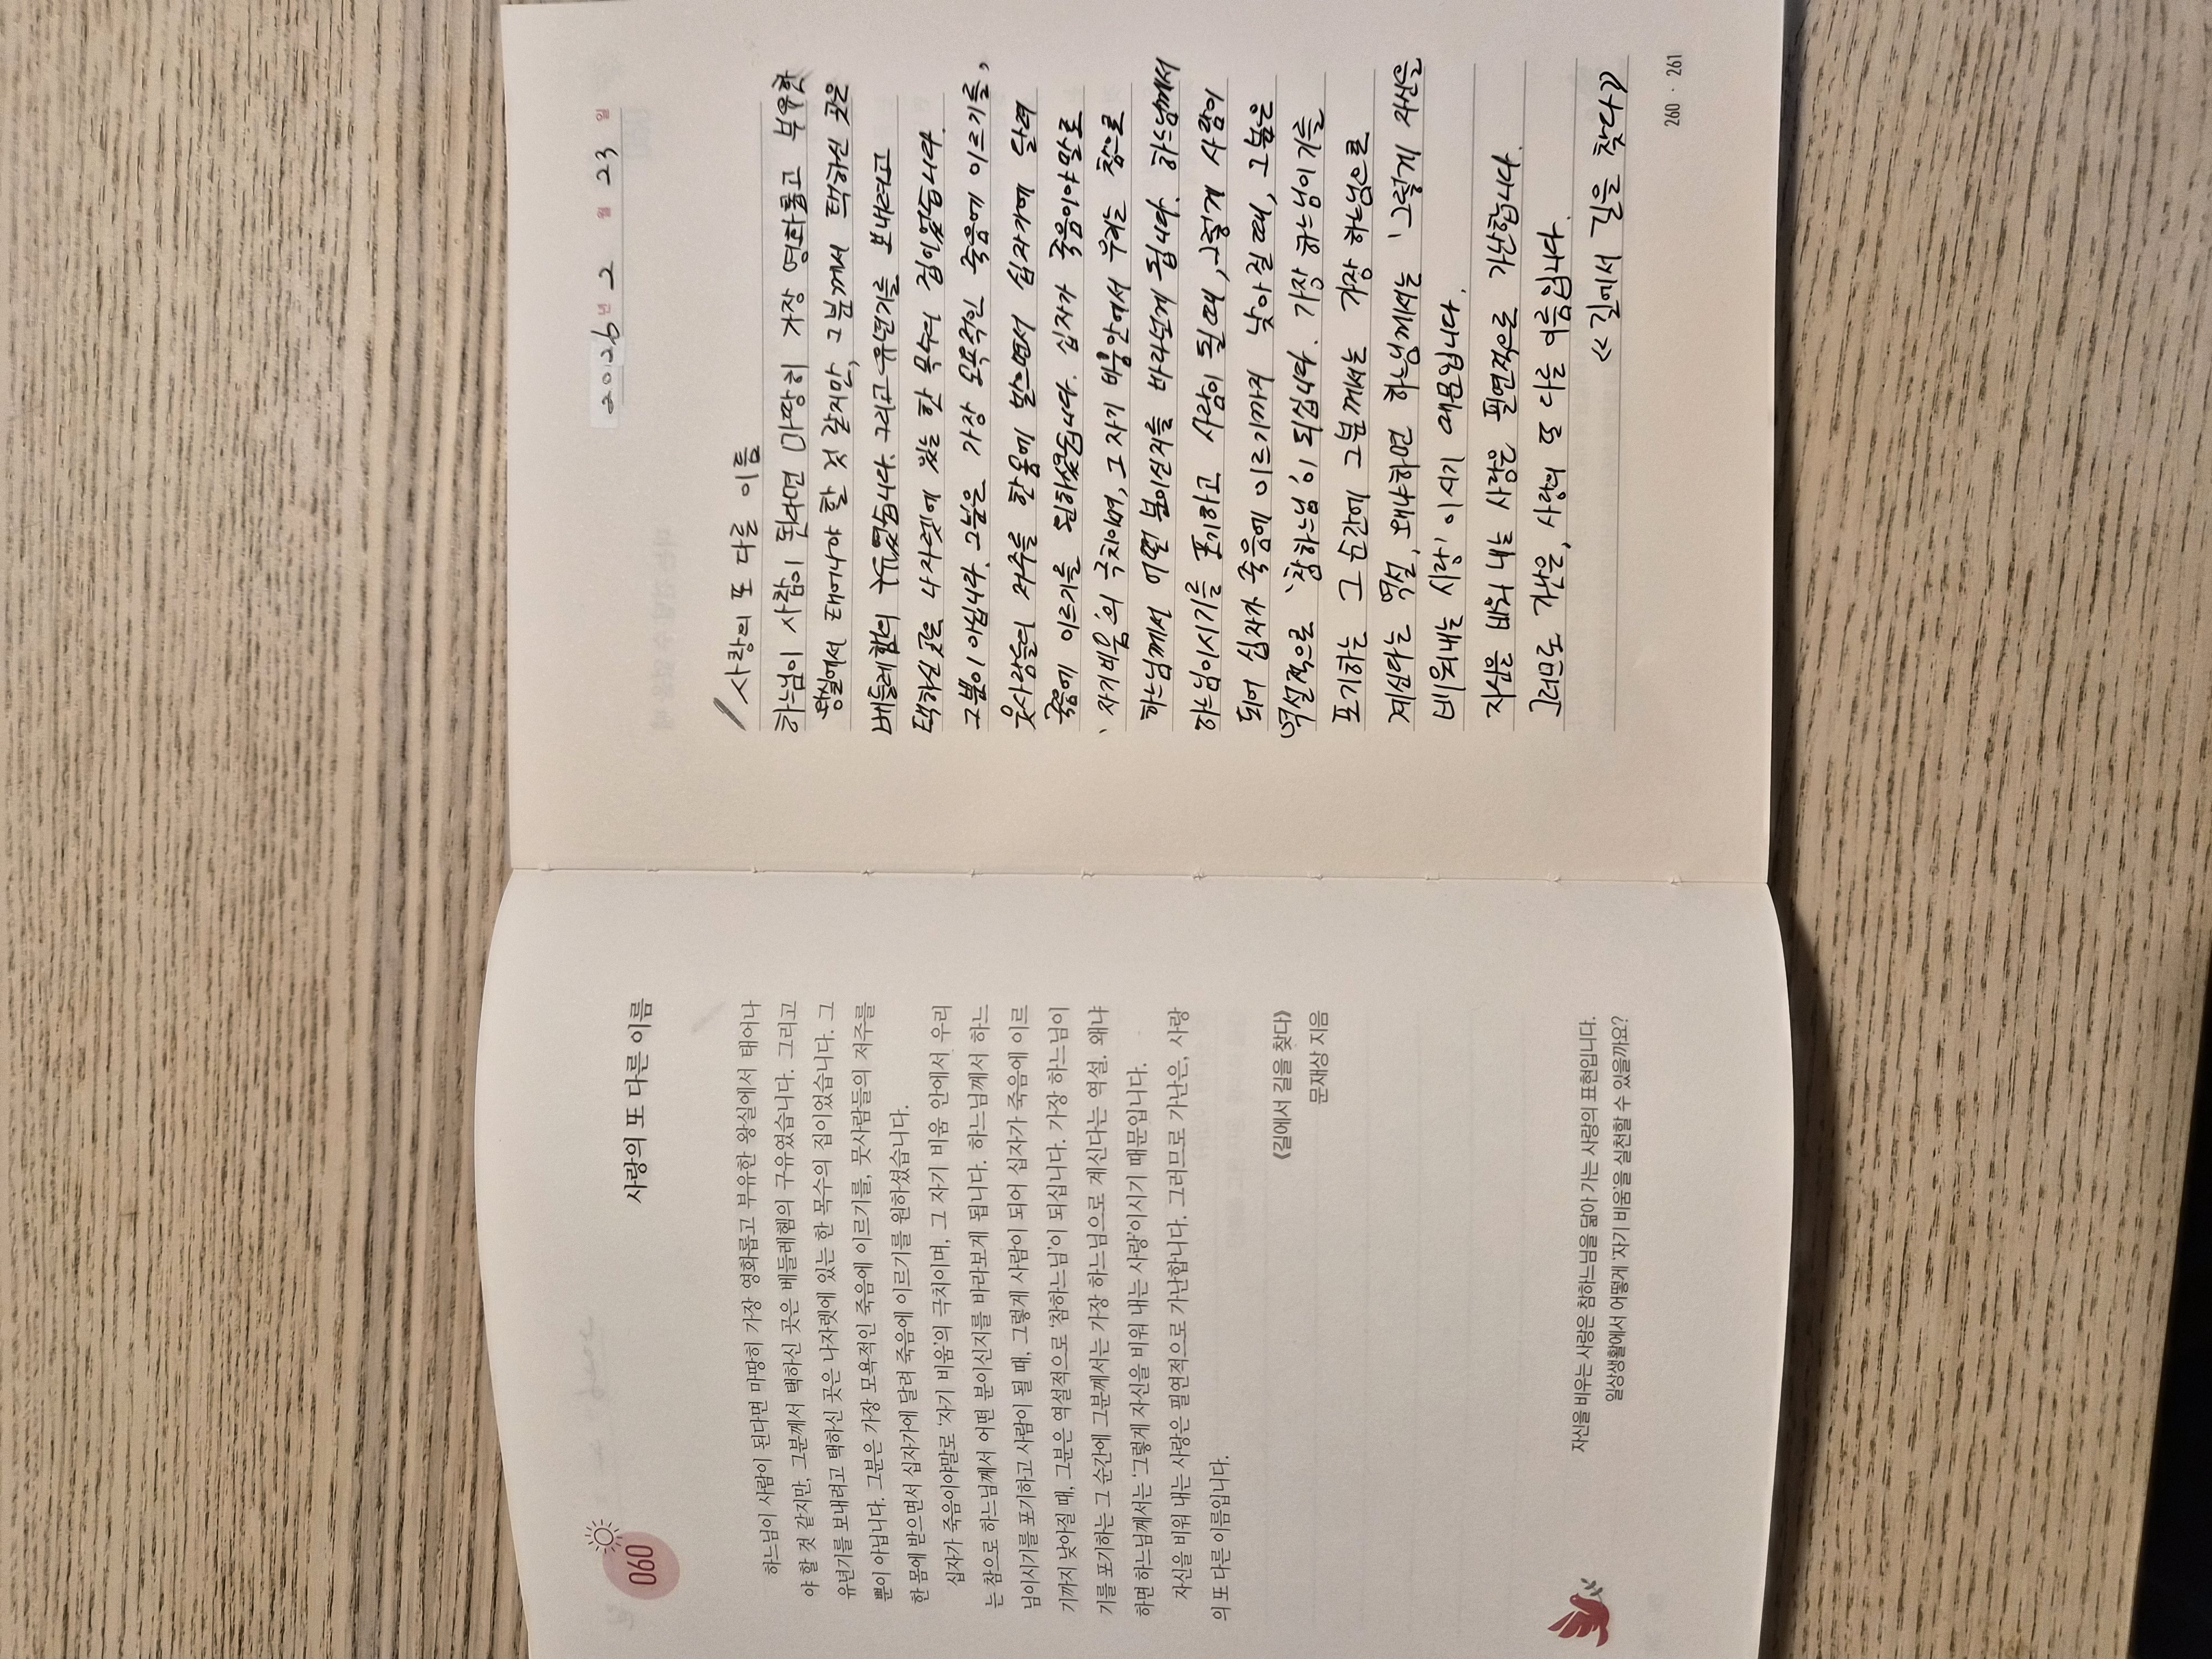 060
사랑의 또 다른 이름
하느님이 사람이 된다면 마땅히 가장 영화롭고 부유한 왕실에서 태어나
야 할 것 같지만, 그분께서 택하신 곳은 베들레헴의 구유였습니다. 그리고
유년기를 보내려고 택하신 곳은 나자렛에 있는 한 목수의 집이었습니다. 그
뿐이 아닙니다. 그분은 가장 모욕적인 죽음에 이르기를, 뭇사람들의 저주를
한 몸에 받으면서 십자가에 달려 죽음에 이르기를 원하셨습니다.
십자가 죽음이야말로 ‘자기 비움’의 극치이며, 그 자기 비움 안에서 우리
는 참으로 하느님께서 어떤 분이신지를 바라보게 됩니다. 하느님께서 하느
님이시기를 포기하고 사람이 될 때, 그렇게 사람이 되어 십자가 죽음에 이르
기까지 낮아질 때, 그분은 역설적으로 ‘참하느님’이 되십니다. 가장 하느님이
기를 포기하는 그 순간에 그분께서는 가장 하느님으로 계신다는 역설. 왜냐
하면 하느님께서는 ‘그렇게 자신을 비워 내는 사랑’이시기 때문입니다.
자신을 비워 내는 사랑은 필연적으로 가난합니다. 그러므로 가난은, 사랑
의 또 다른 이름입니다.
《길에서 길을 찾다》
문재상 지음
자신을 비우는 사랑은 참하느님을 닮아 가는 사랑의 표현입니다.
일상생활에서 어떻게 ‘자기 비움’을 실천할 수 있을까요?
2026년 2월 23일
사랑의 또 다른 이름
하느님이 사람이 된다면 마땅히 가장 영화롭고 부유한
왕실에서 태어나야 할 것 같지만, 그분께서 택하신 곳은
베들레헴의 구유였습니다. 그리고 유년기를 보내려고
택하신 곳은 나자렛에 있는 한 목수의 집이었습니다.
그뿐이 아닙니다. 그분은 가장 모욕적인 죽음에 이르기를,
뭇사람들의 저주를 한 몸에 받으면서 십자가에 달려
죽음에 이르기를 원하셨습니다. 십자가 죽음이야말로
‘자기비움’의 극치이며, 그 자기 비움 안에서 우리는 참으로
하느님께서 어떤 분이신지를 바라보게 됩니다. 하느님께서
하느님이시기를 포기하고 사람이 될 때, 그렇게 사람이
되어 십자가 죽음에 이르기까지 낮아질 때, 그분은
역설적으로 ‘참하느님’이 되십니다. 가장 하느님이기를
포기하는 그 순간에 그분께서는 가장 하느님으로
계신다는 역설. 왜냐하면 하느님께서는 ‘그렇게 자신을
비워내는 사랑’이시기 때문입니다.
자신을 비워 내는 사랑은 필연적으로 가난합니다.
그러므로 가난은, 사랑의 또 다른 이름입니다.
《길에서 길을 찾다》
260 · 261